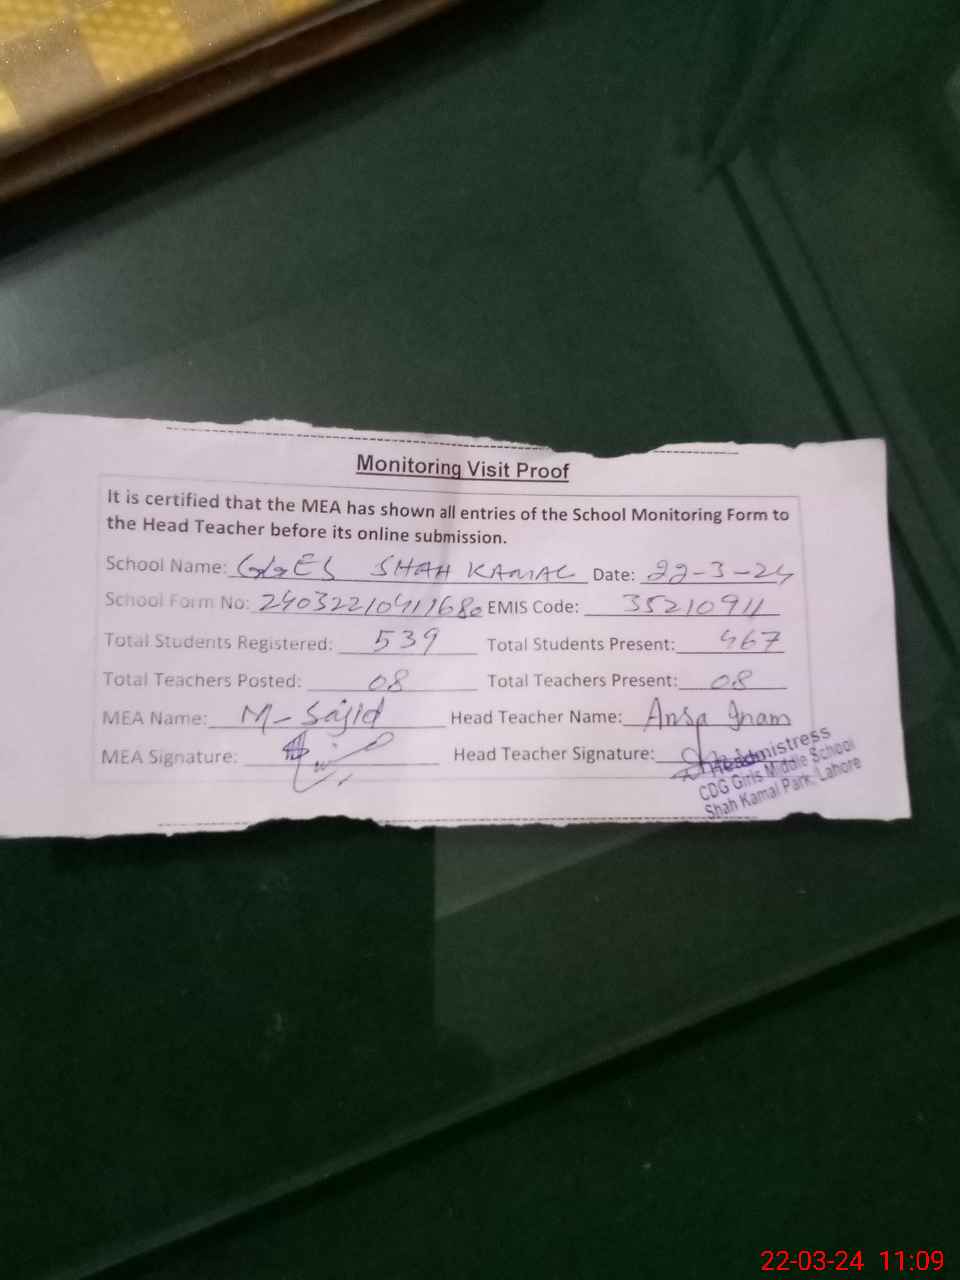 Monitoring Visit Proof
It is certified that the MEA has shown all entries of the School Monitoring Form to
the Head Teacher before its online submission.
School Name: GGES SHAH KAMAL Date: 22-3-24
School Form No: 240322104111680 EMIS Code: 35210911
Total Students Registered: 539 Total Students Present: 467
Total Teachers Posted: 08 Total Teachers Present: 08
MEA Name: M-Sajid Head Teacher Name: Ansa Inam
MEA Signature: Head Teacher Signature:
Headmistress
CDG Girls Middle School
Shah Kamal Park, Lahore
22-03-24 11:09